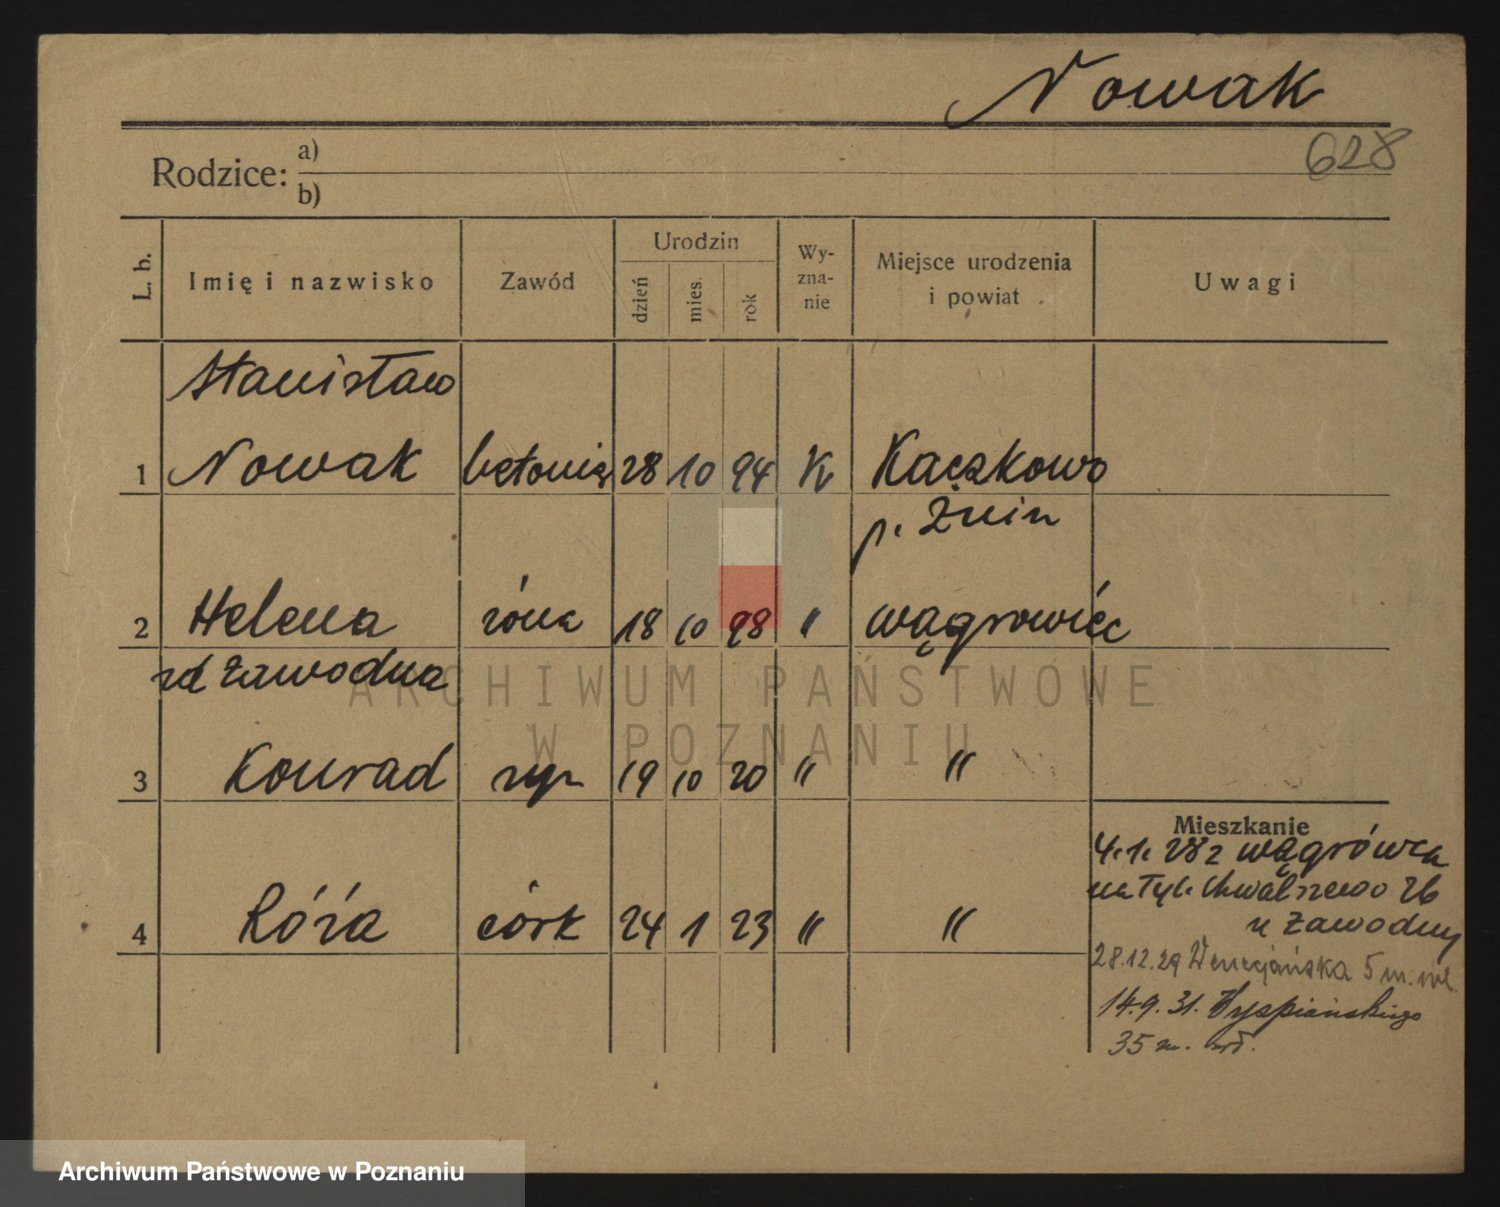 Nowak
628
Rodzice: a)
b)
L. b. Imię i nazwisko Zawód Urodzin dzień mies. rok Wy-zna-nie Miejsce urodzenia i powiat Uwagi
Stanisław
1 Nowak betoniarz 28 10 94 K Kaczkowo
p. Żnin
2 Helena żona 18 10 98 " Wągrowiec
zd Zawodna
3 Konrad syn 19 10 20 " "
Mieszkanie
4.1.28 z Wągrówca
na Tyl. Chwaliszewo 26
4 Róża córk 24 1 23 " "
u Zawodny
28.12.29 Wenecjańska 5 m. wł.
14.9.31. Wyspiańskiego
35 m.
ARCHIWUM PAŃSTWOWE
W POZNANIU
Archiwum Państwowe w Poznaniu